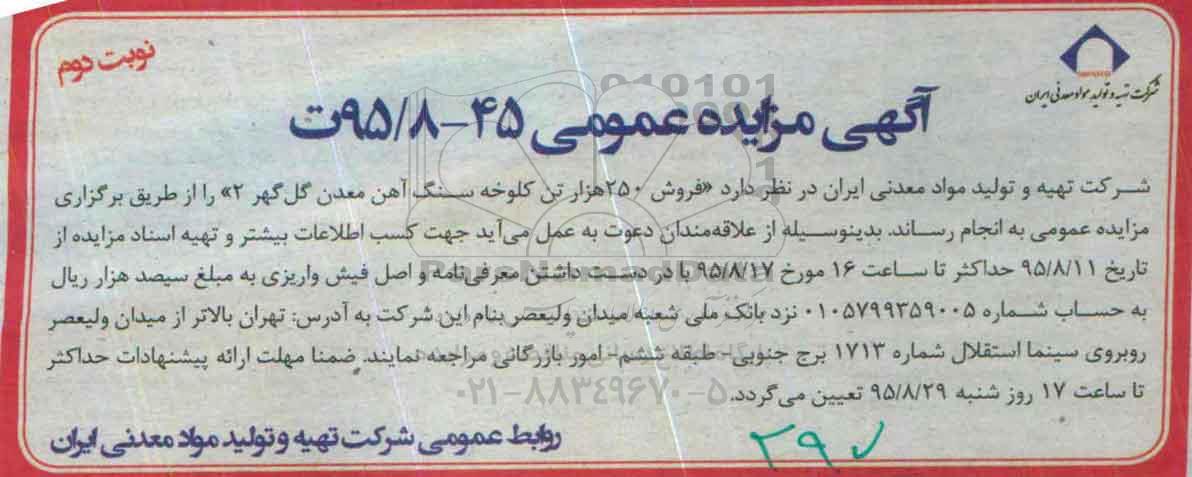 نوبت دوم
شرکت تهیه و تولید مواد معدنی ایران
آگهی مزایده عمومی ۴۵-۹۵/۸ت
شرکت تهیه و تولید مواد معدنی ایران در نظر دارد «فروش ۲۵۰هزار تن کلوخه سنگ آهن معدن گل گهر ۲» را از طریق برگزاری
مزایده عمومی به انجام رساند. بدینوسیله از علاقه‌مندان دعوت به عمل می‌آید جهت کسب اطلاعات بیشتر و تهیه اسناد مزایده از
تاریخ ۹۵/۸/۱۱ حداکثر تا ساعت ۱۶ مورخ ۹۵/۸/۱۷ با در دست داشتن معرفی‌نامه و اصل فیش واریزی به مبلغ سیصد هزار ریال
به حساب شماره ۰۱۰۵۷۹۹۳۵۹۰۰۵ نزد بانک ملی شعبه میدان ولیعصر بنام این شرکت به آدرس: تهران بالاتر از میدان ولیعصر
روبروی سینما استقلال شماره ۱۷۱۳ برج جنوبی- طبقه ششم- امور بازرگانی مراجعه نمایند. ضمنا مهلت ارائه پیشنهادات حداکثر
تا ساعت ۱۷ روز شنبه ۹۵/۸/۲۹ تعیین می گردد.
۰۲۱-۸۸۳۴۹۶۷۰-۵
روابط عمومی شرکت تهیه و تولید مواد معدنی ایران
۲۹۷
ParsNamadData